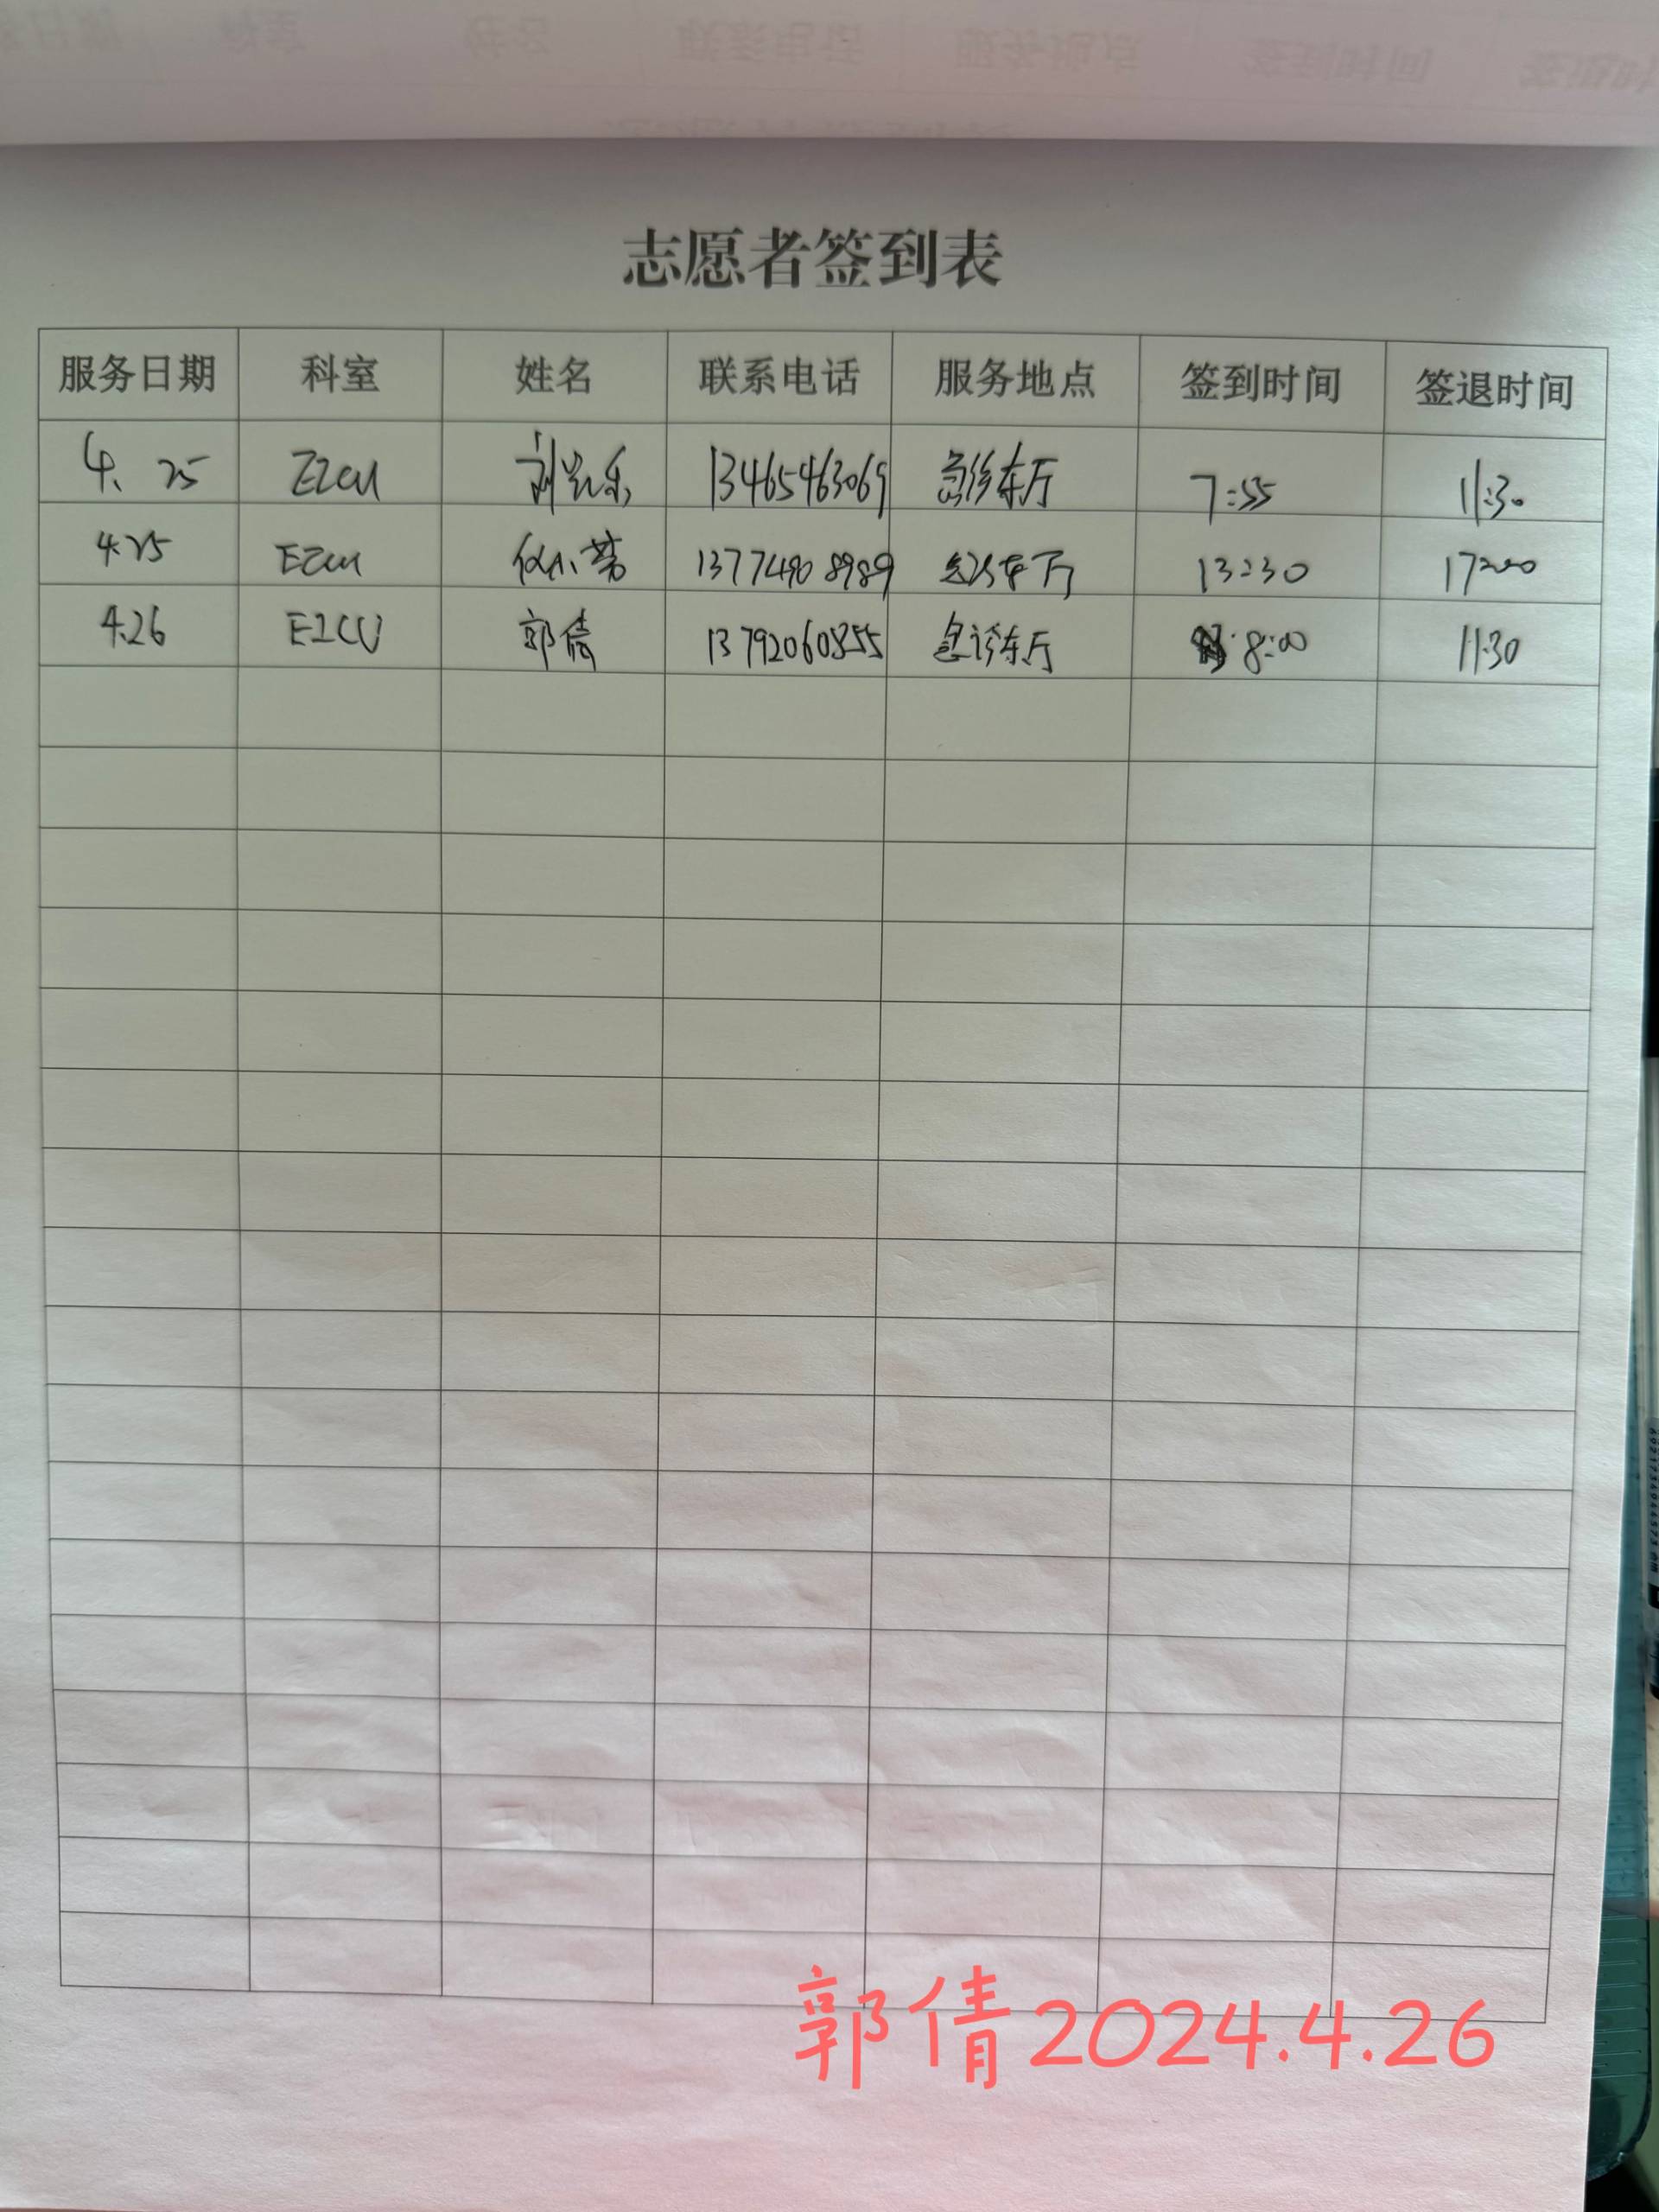 志愿者签到表
服务日期 科室 姓名 联系电话 服务地点 签到时间 签退时间
4.25 EICU 刘 乐 13465463069 急诊东厅 7:55 11:30
4.25 EICU 13774908989 急诊东厅 13:30 17:00
4.26 EICU 郭倩 13792060855 急诊东厅 8:00 11:30
郭倩2024.4.26